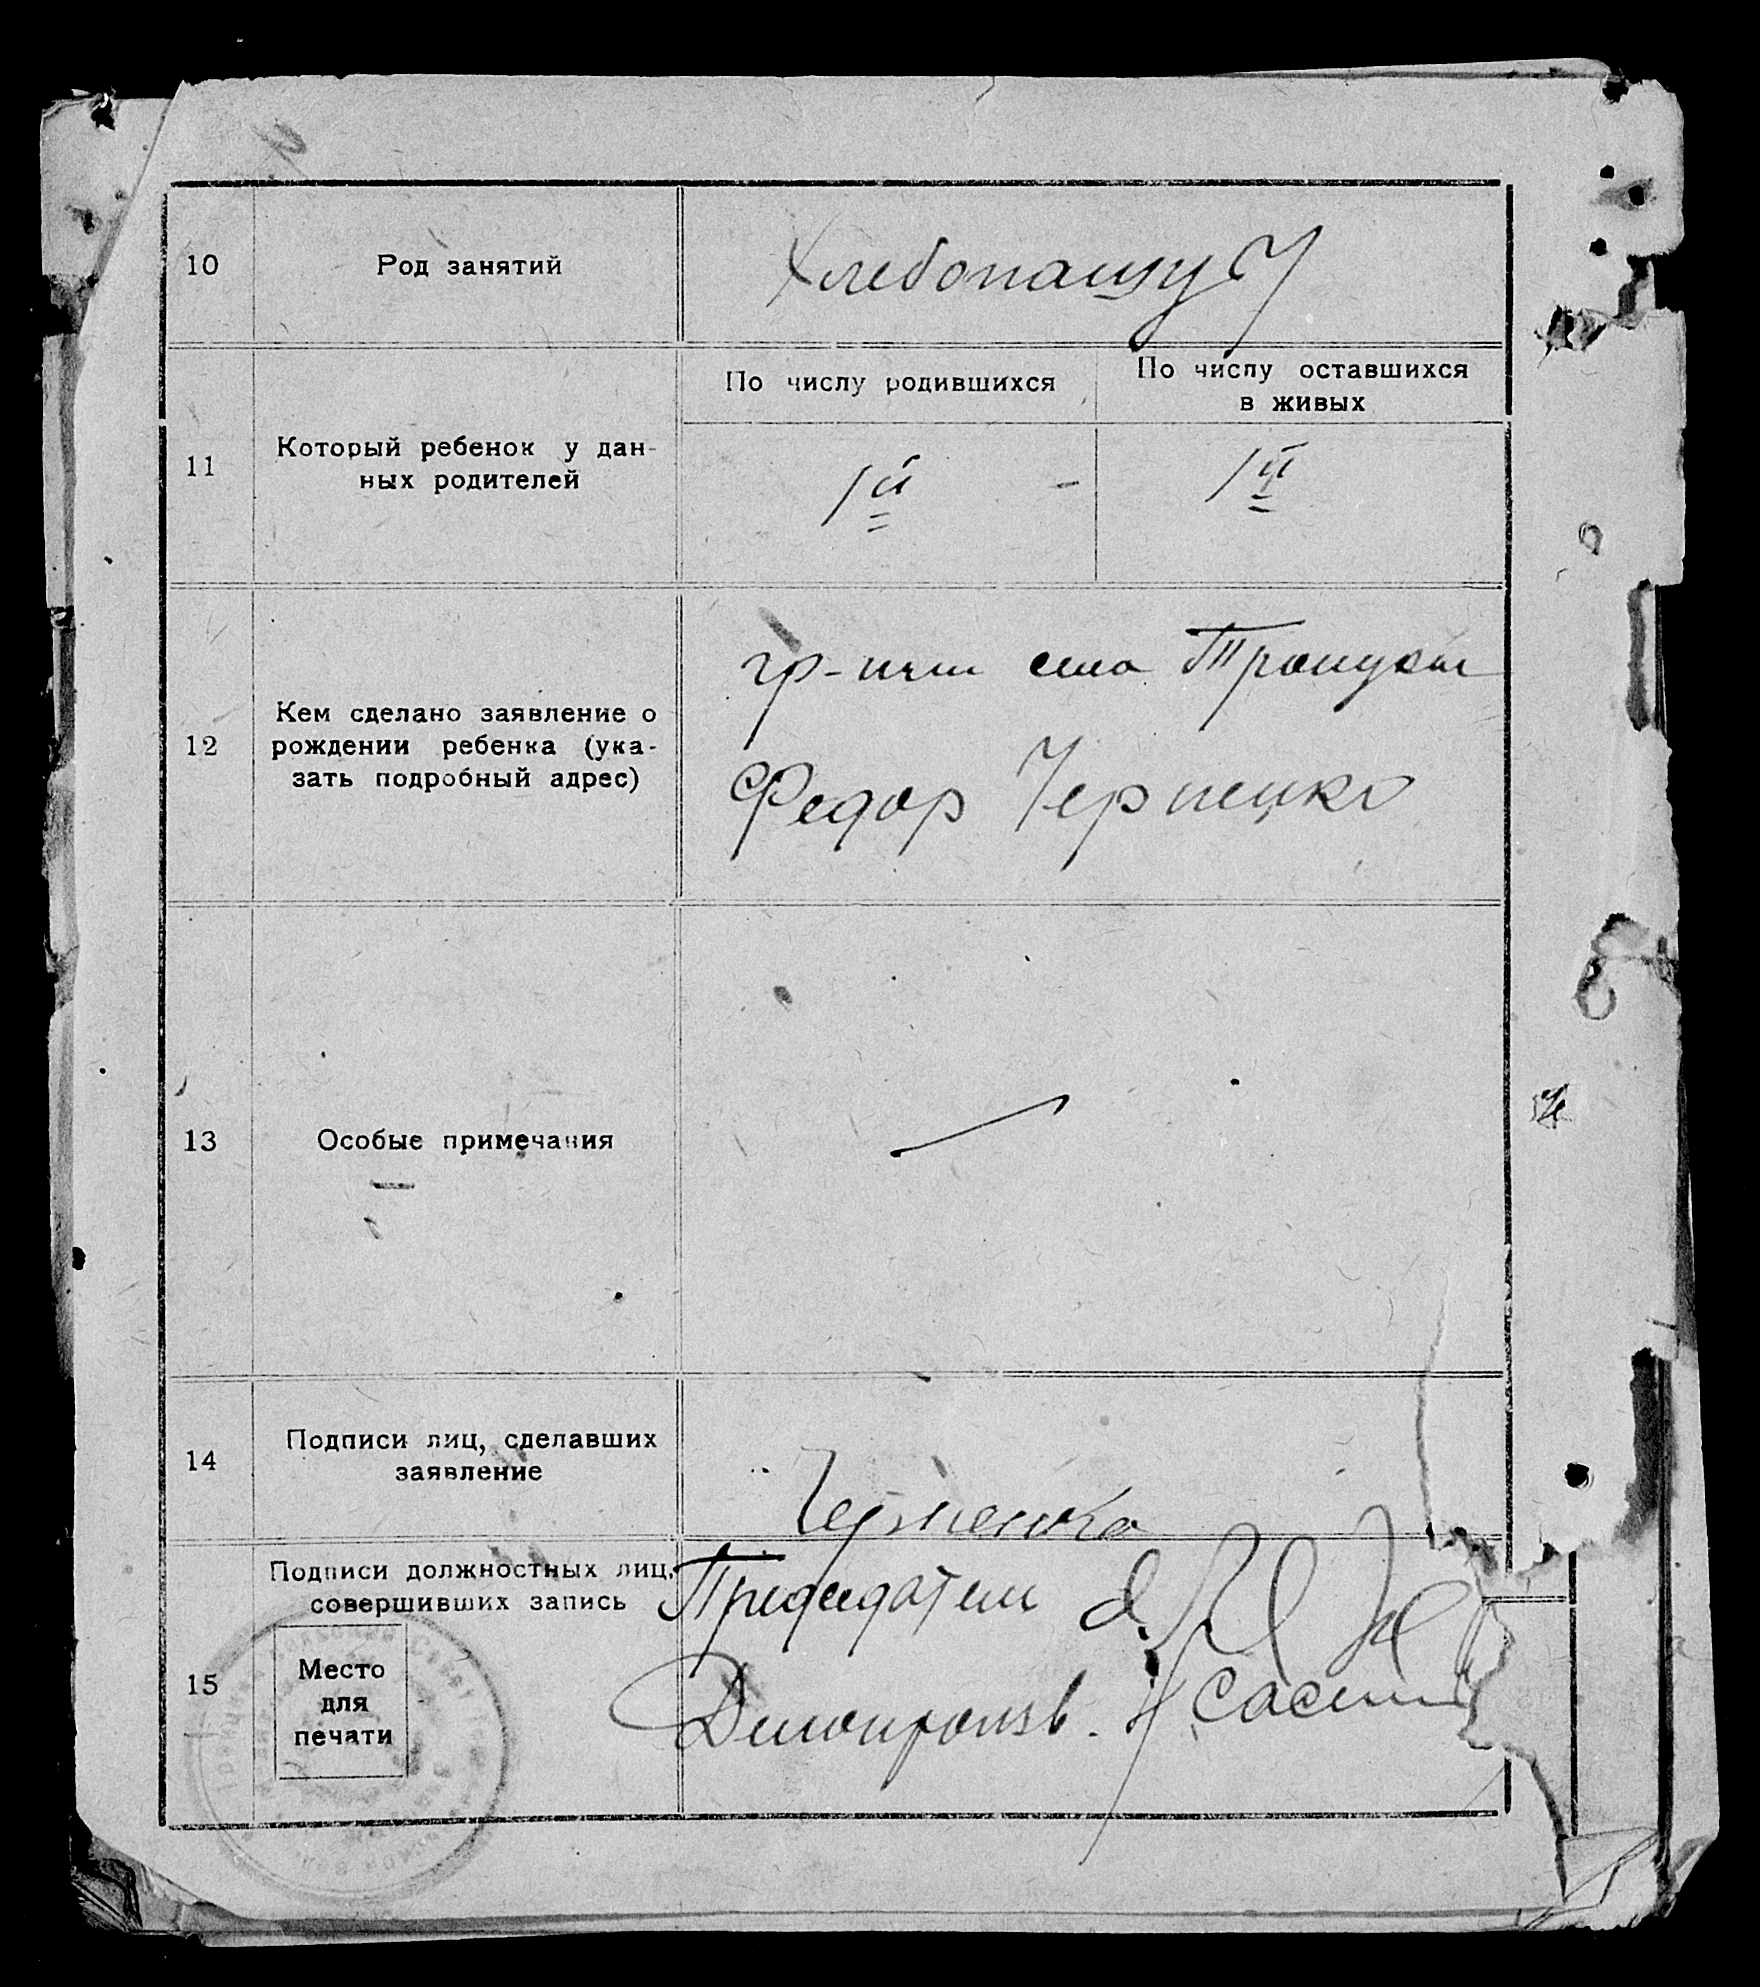 10 Род занятий Хлебопашу
11 Который ребенок у дан-
ных родителей
По числу родившихся
По числу оставшихся
в живых
1й - 1й
12 Кем сделано заявление о
рождении ребенка (ука-
зать подробный адрес)
гр-нин села
Федор Черненко
13 Особые примечания
14 Подписи лиц, сделавших
заявление
Черненко
15 Подписи должностных лиц,
совершивших запись
Место
для
печати
Председатель
Делопроизв.